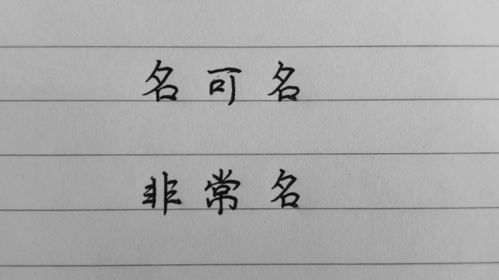 名可名
非常名